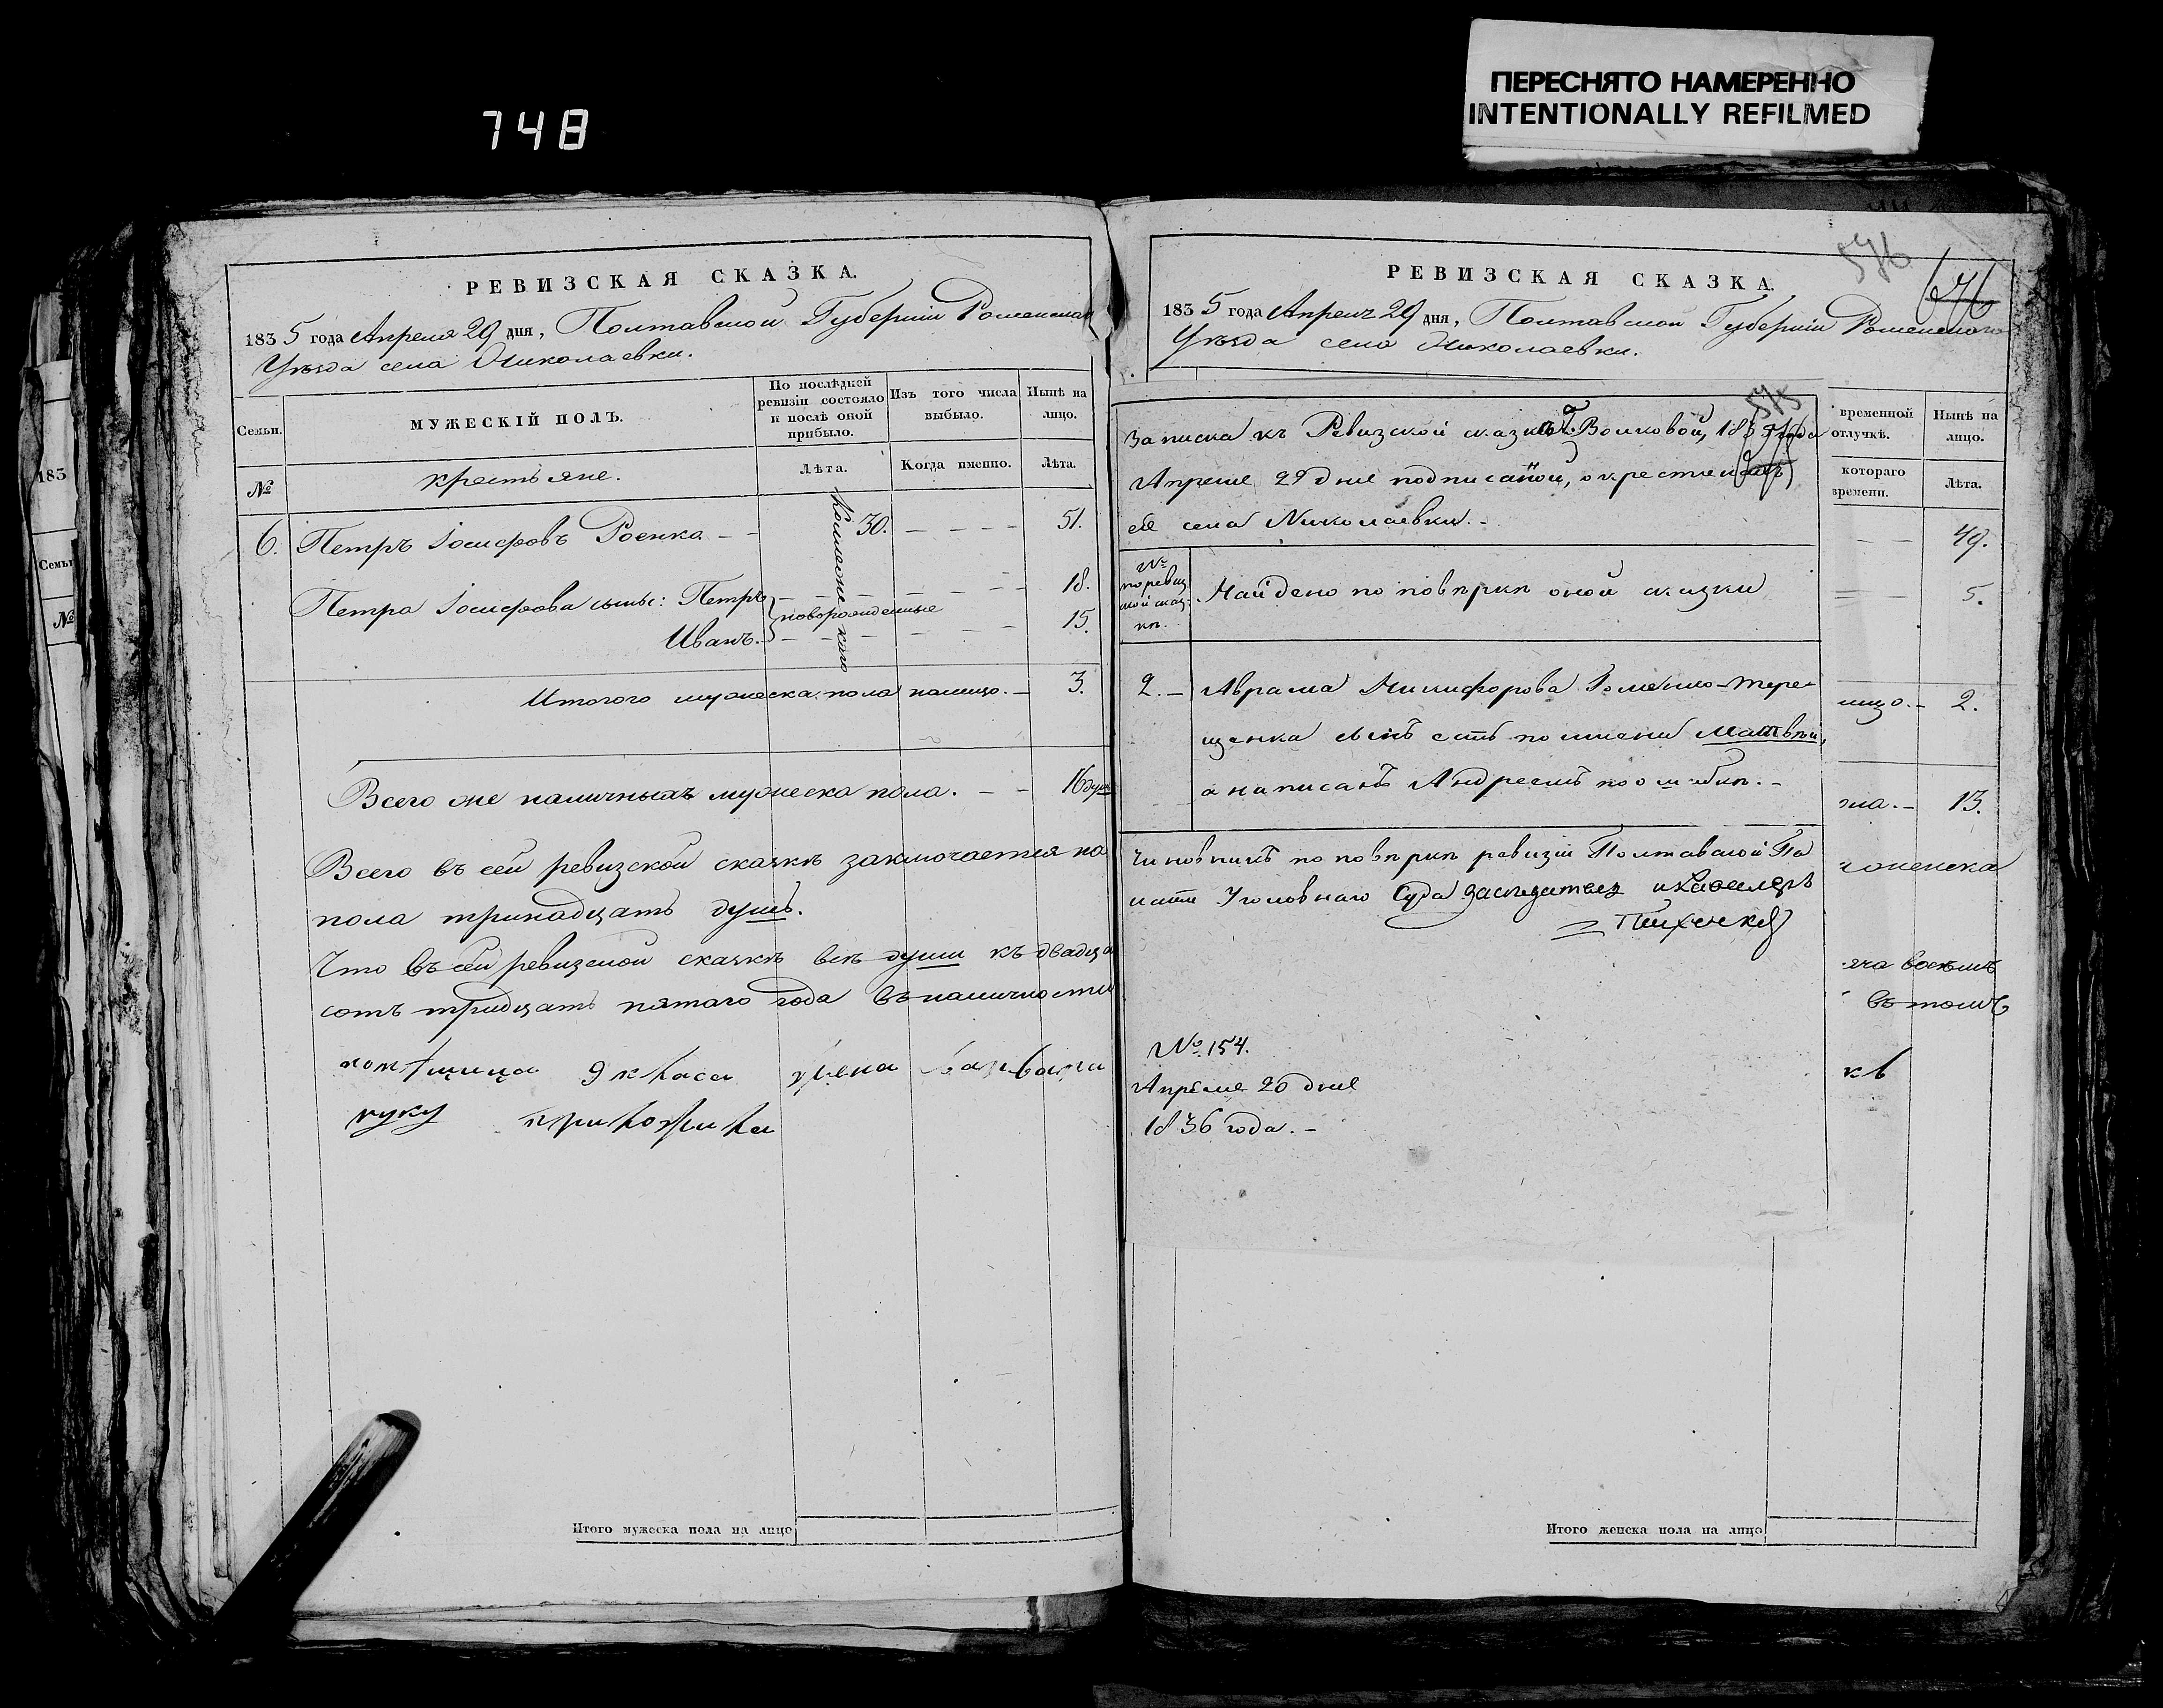 748
ПЕРЕСНЯТО НАМЕРЕННО
INTENTIONALLY REFILMED
РЕВИЗСКАЯ СКАЗКА.
1835 года Апреля 29 дня, Полтавской Губернiи Роменскаго
Уѣзда села Николаевки.
Семьи.
МУЖЕСКIЙ ПОЛЪ.
По послѣдней ревизiи состояло и послѣ оной прибыло.
Изъ того числа выбыло.
Нынѣ на лицо.
№
крестьяне.
Лѣта.
Когда именно.
Лѣта.
6. Петръ Iосифовъ Роенко – – 30. – – – – 51.
Петра Iосифова сыны: Петръ – – – – 18.
новорожденные
Иванъ. – – – – 15.
Итого мужеска пола налицо. – 3.
Всего же наличныхъ мужеска пола. – – 16 душъ
Всего въ сей ревизской сказкѣ заключается на
пола тринадцать душъ.
Что въ сей ревизской сказкѣ всѣ души къ двадца
сотъ тридцать пятаго года въ наличности
9 класа
руку приложила
Итого мужеска пола на лицо
183
Семьи
№
РЕВИЗСКАЯ СКАЗКА.
576
1835 года Апреля 29 дня, Полтавской Губернiи Роменскаго
Уѣзда села Николаевки.
575
Записка къ Ревизской сказкѣ Волковой, 1835 года
Апреля 29 дня подписаной, о крестьянахъ
ее села Николаевки. –
№ по ревизской сказкѣ.
Найдено по повѣркѣ оной сказки
2. – Аврама Никифорова Роменко-Тере-
щенка сынъ есть по имени Матвѣй,
а написанъ Андреемъ по ошибкѣ. –
Чиновникъ по повѣркѣ ревизiи Полтавской Па
латы Уголовнаго Суда Засѣдатель и Кавалеръ
№ 154.
Апреля 20 дня
1836 года. –
временной отлучкѣ.
Нынѣ на лицо.
котораго времени.
Лѣта.
– – 49.
– – 5.
лицо. – 2.
ла. – 13.
женска
въ томъ
Итого женска пола на лицо